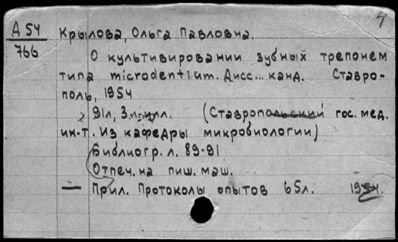 4
Д 54
766
Крылова, Ольга Павловна.
О культивировании зубных трепонем
типа microdentium. Дисс... канд. Ставро-
поль, 1954
91л, 3 л. илл. (Ставропольский гос. мед.
ин-т. Из кафедры микробиологии)
Библиогр. л. 89-91
Отпеч. на пиш. маш.
— Прил. Протоколы опытов 65л.